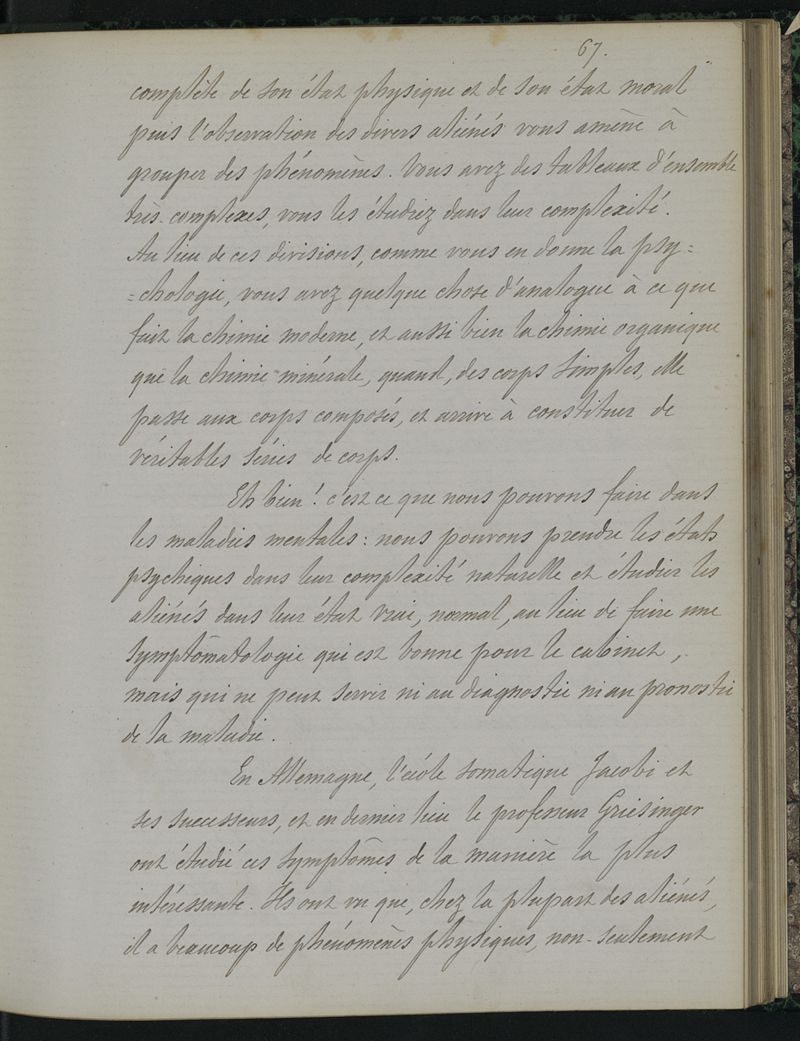 67.
complète de son état physique et de son état moral
puis l'observation des divers aliénés vous amène à
grouper des phénomènes. Vous avez des tableaux d'ensemble
très-complexes, vous les étudiez dans leur complexité.
Au lieu de ces divisions, comme vous en donne la psy=
=chologie, vous avez quelque chose d'analogue à ce que
fait la chimie moderne, et aussi bien la chimie organique
que la chimie minérale, quand, des corps simples, elle
passe aux corps composés, et arrive à constituer de
véritables séries de corps.
Eh bien! c'est ce que nous pouvons faire dans
les maladies mentales: nous pouvons prendre les états
psychiques dans leur complexité naturelle et étudier les
aliénés dans leur état vrai, normal, au lieu de faire une
symptômatologie qui est bonne pour le cabinet,
mais qui ne peut servir ni au diagnostic ni au pronostic
de la maladie.
En Allemagne, l'école somatique Jacobi et
ses successeurs, et en dernier lieu le professeur Griesinger
ont étudié ces symptômes de la manière la plus
intéressante. Ils ont vu que, chez la plupart des aliénés,
il a beaucoup de phénomènes physiques, non-seulement